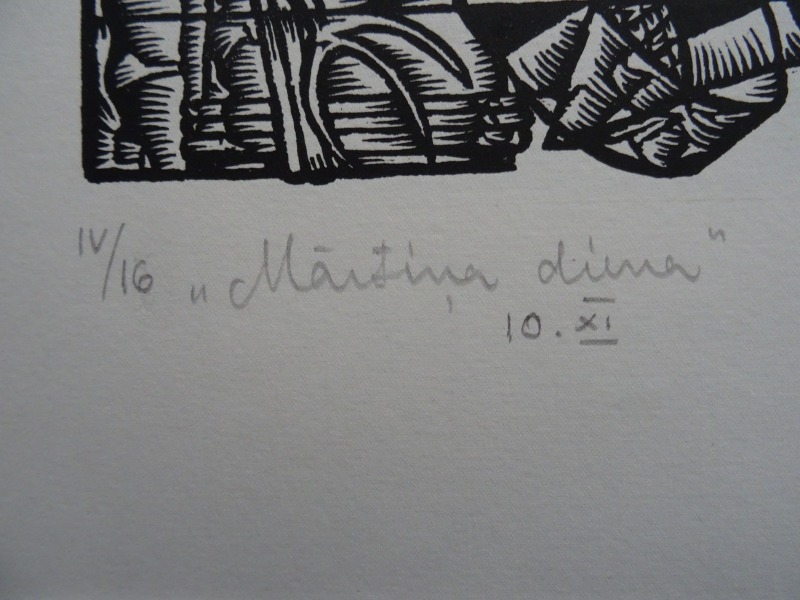 IV/16 „Mārtiņa diena"
10. XI